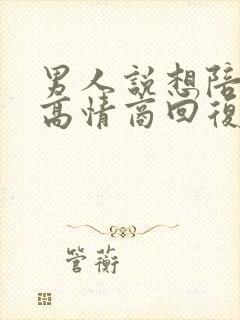 男人說想陪
高情商回復
管蘅